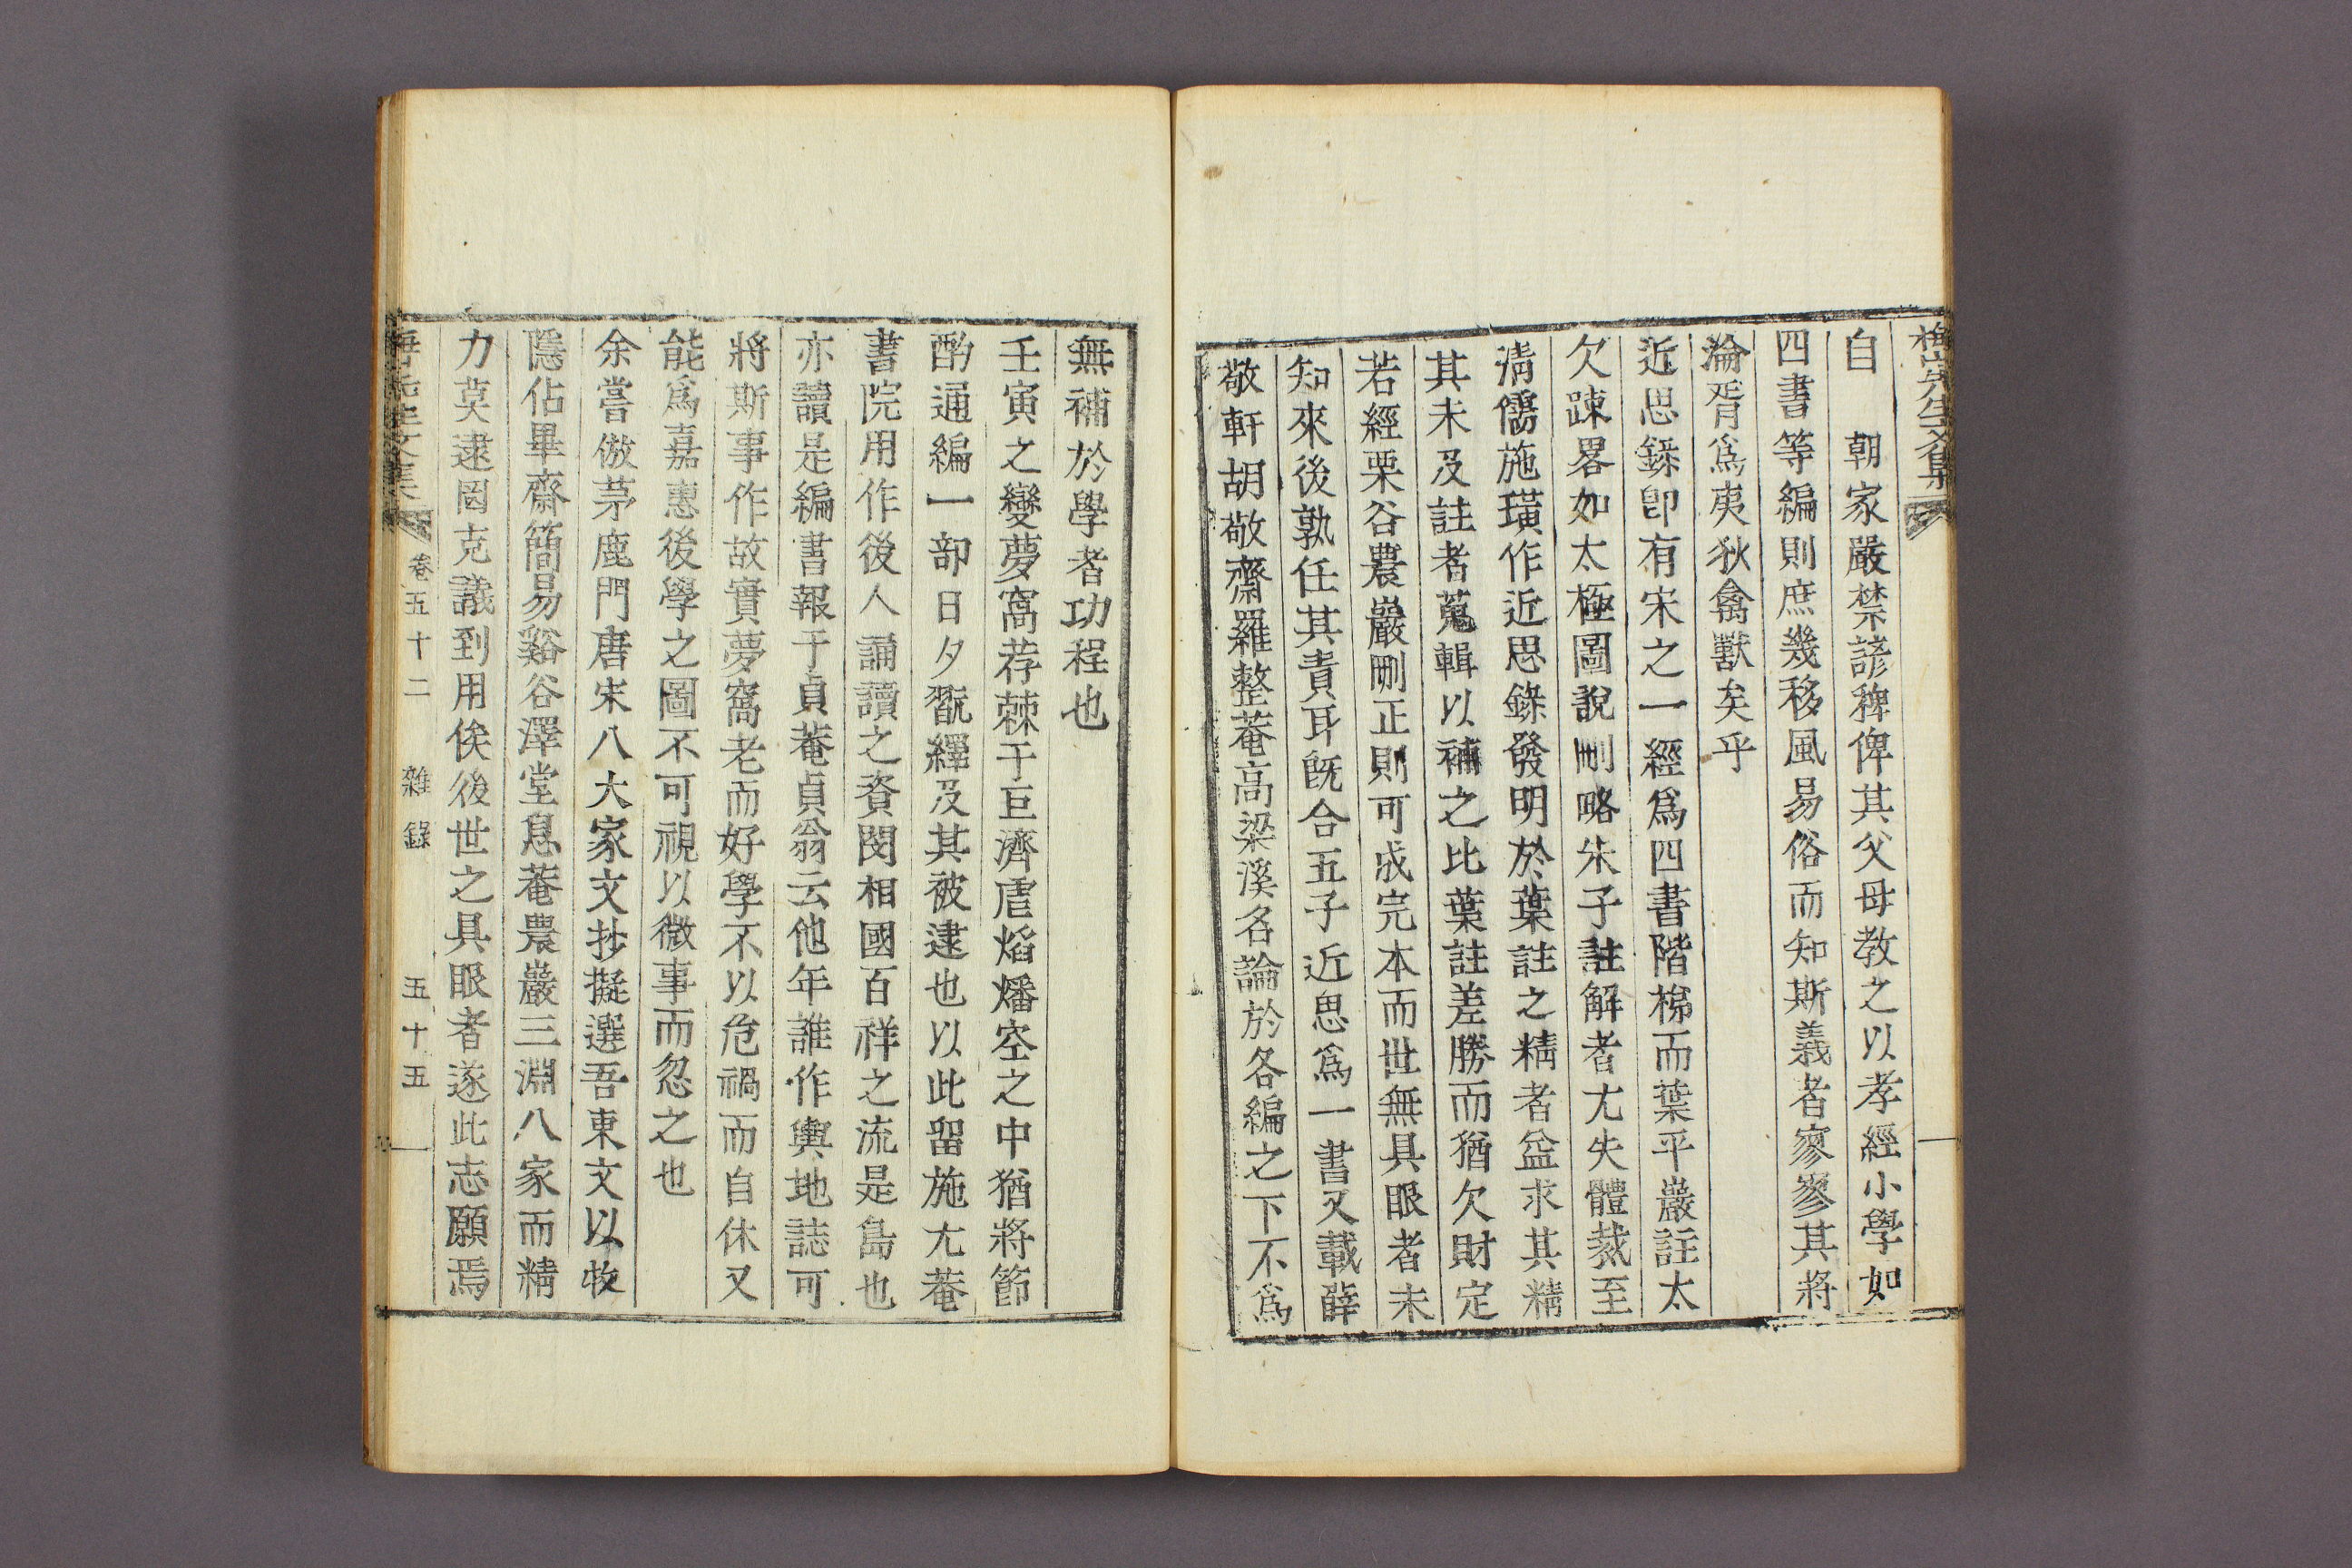 梅山先生文集
自　朝家嚴禁諺稗俾其父母教之以孝經小學如
四書等編則庶幾移風易俗而知斯義者寥寥其將
淪胥爲夷狄禽獸矣乎
近思錄卽有宋之一經爲四書階梯而葉平巖註太
欠踈畧如太極圖說刪略朱子註解者尤失體裁至
淸儒施璜作近思錄發明於葉註之精者益求其精
其未及註者蒐輯以補之比葉註差勝而猶欠財定
若經栗谷農巖刪正則可成完本而世無具眼者未
知來後孰任其責耳旣合五子近思爲一書又載薛
敬軒胡敬齋羅整菴高梁溪名論於各編之下不爲
無補於學者功程也
壬寅之變夢窩荐棘干巨濟虐焰燔空之中猶將節
酌通編一部日夕翫繹及其被逮也以此留施尤菴
書院用作後人誦讀之資閔相國百祥之流是島也
亦讀是編書報于貞菴貞翁云他年誰作輿地誌可
將斯事作故實夢窩老而好學不以危禍而自休又
能爲嘉惠後學之圖不可視以微事而忽之也
余嘗倣茅鹿門唐宋八大家文抄擬選吾東文以牧
隱佔畢齋簡易谿谷澤堂息菴農巖三淵八家而精
力莫逮罔克議到用俟後世之具眼者遂此志願焉
梅山先生文集　卷五十二　雜錄　五十五